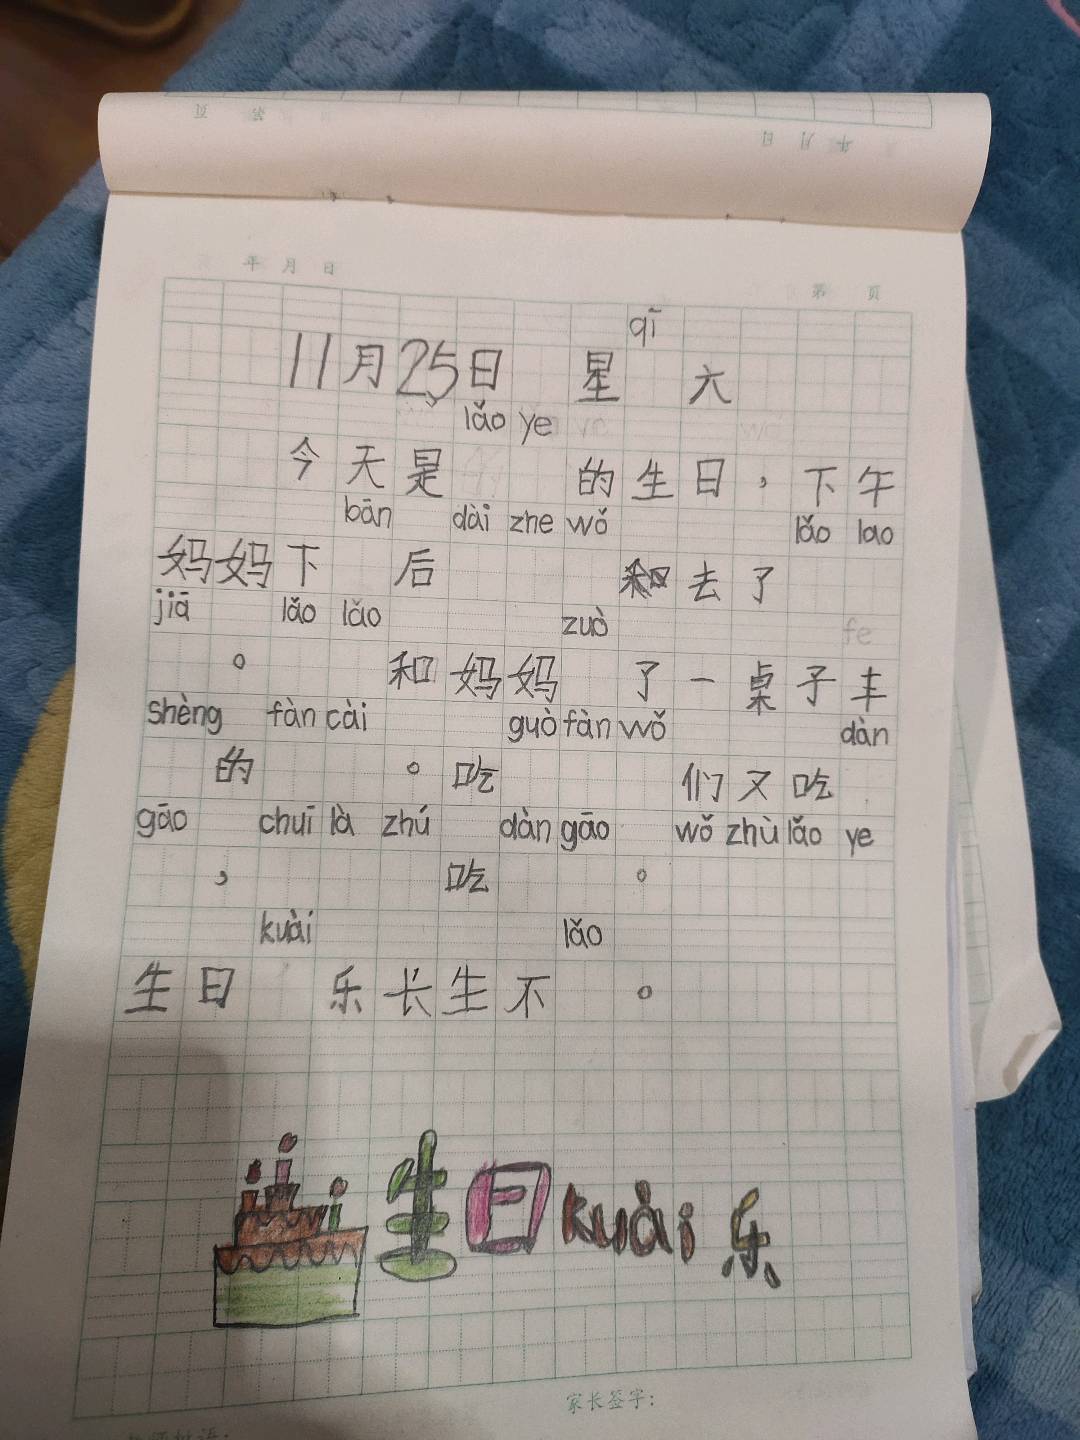 年 月 日
第 页
qī
11月25日 星 六
lǎo ye
今天是 的生日，下午
bān dài zhe wǒ lǎo lao
妈妈下 后 和去了
jiā lǎo lǎo zuò fe
。 和妈妈 了一桌子丰
shèng fàn cài guò fàn wǒ dàn
的 。吃 们又吃
gāo chuī là zhú dàn gāo wǒ zhù lǎo ye
， 吃 。
kuài lǎo
生日 乐长生不 。
生日kuài乐
家长签字：